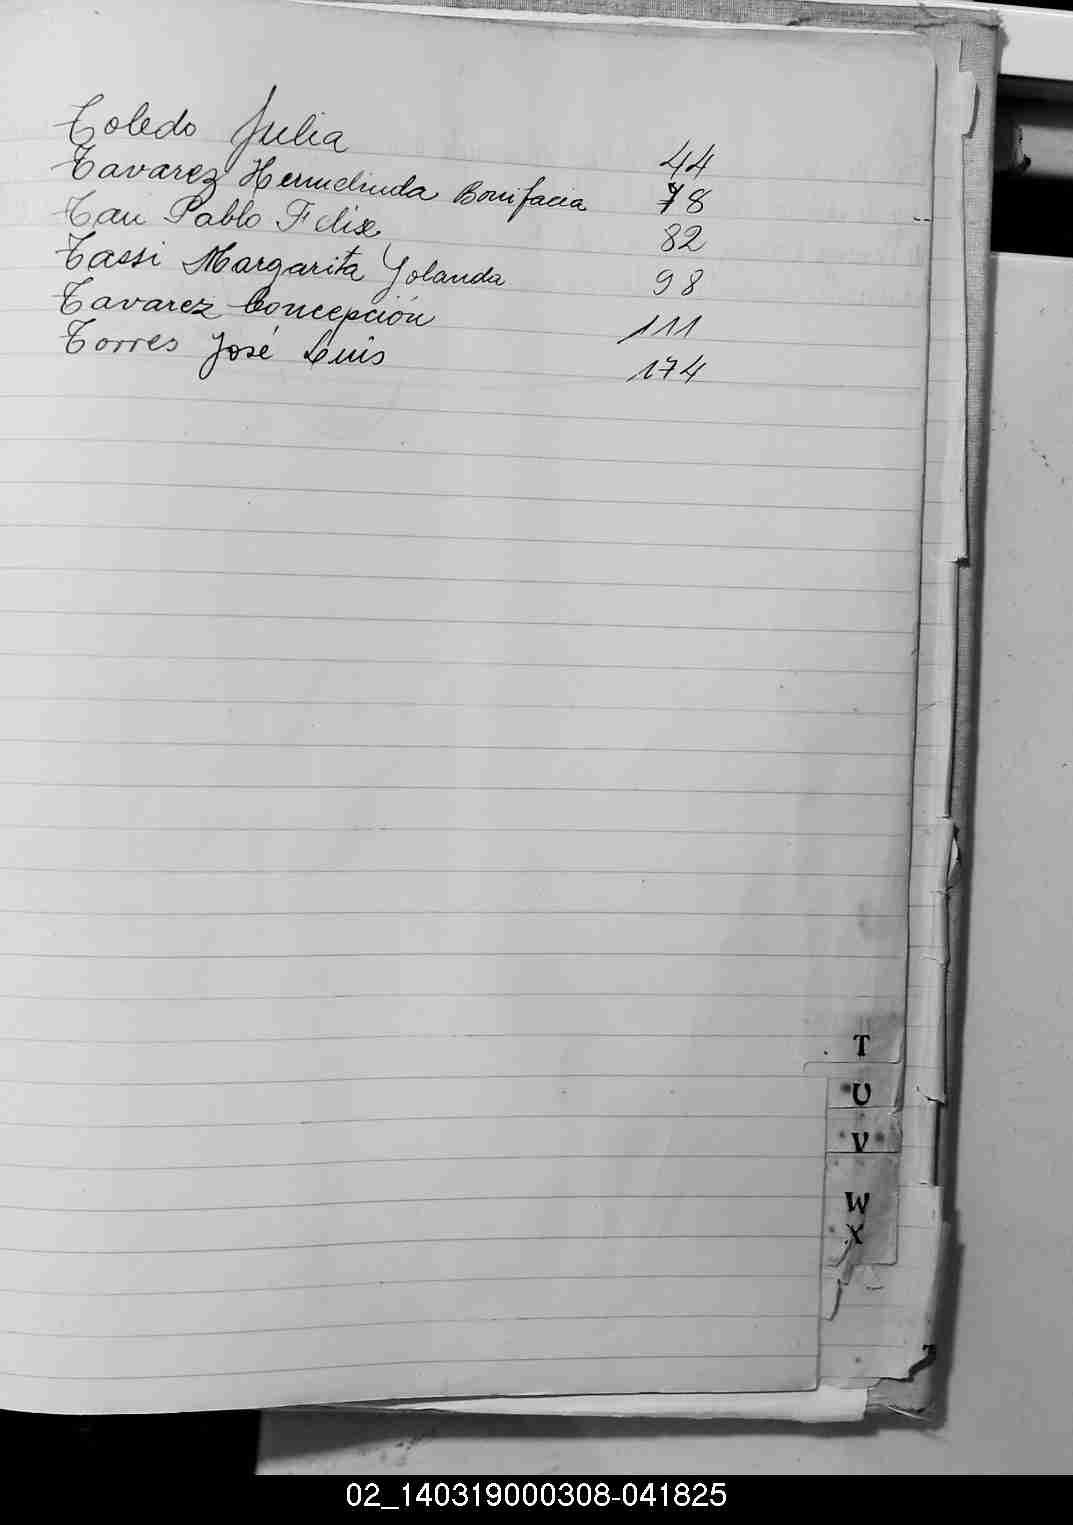 Toledo Julia 44
Tavarez Hermelinda Bonifacia 78
Tau Pablo Felix 82
Tassi Margarita Yolanda 98
Tavarez Concepción 111
Torres José Luis 174
T
U
V
W
X
02_140319000308-041825